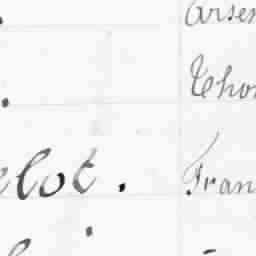 Arsen
Thom
elot. Fran